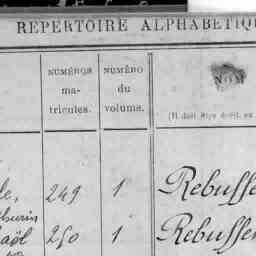 RÉPERTOIRE ALPHABÉTIQU
NUMÉROS
ma-
tricules.
NUMÉRO
du
volume.
NOM
(Il doit être écrit en
le, 249 1 Rebuffe
thurin
aël 250 1 Rebuffe